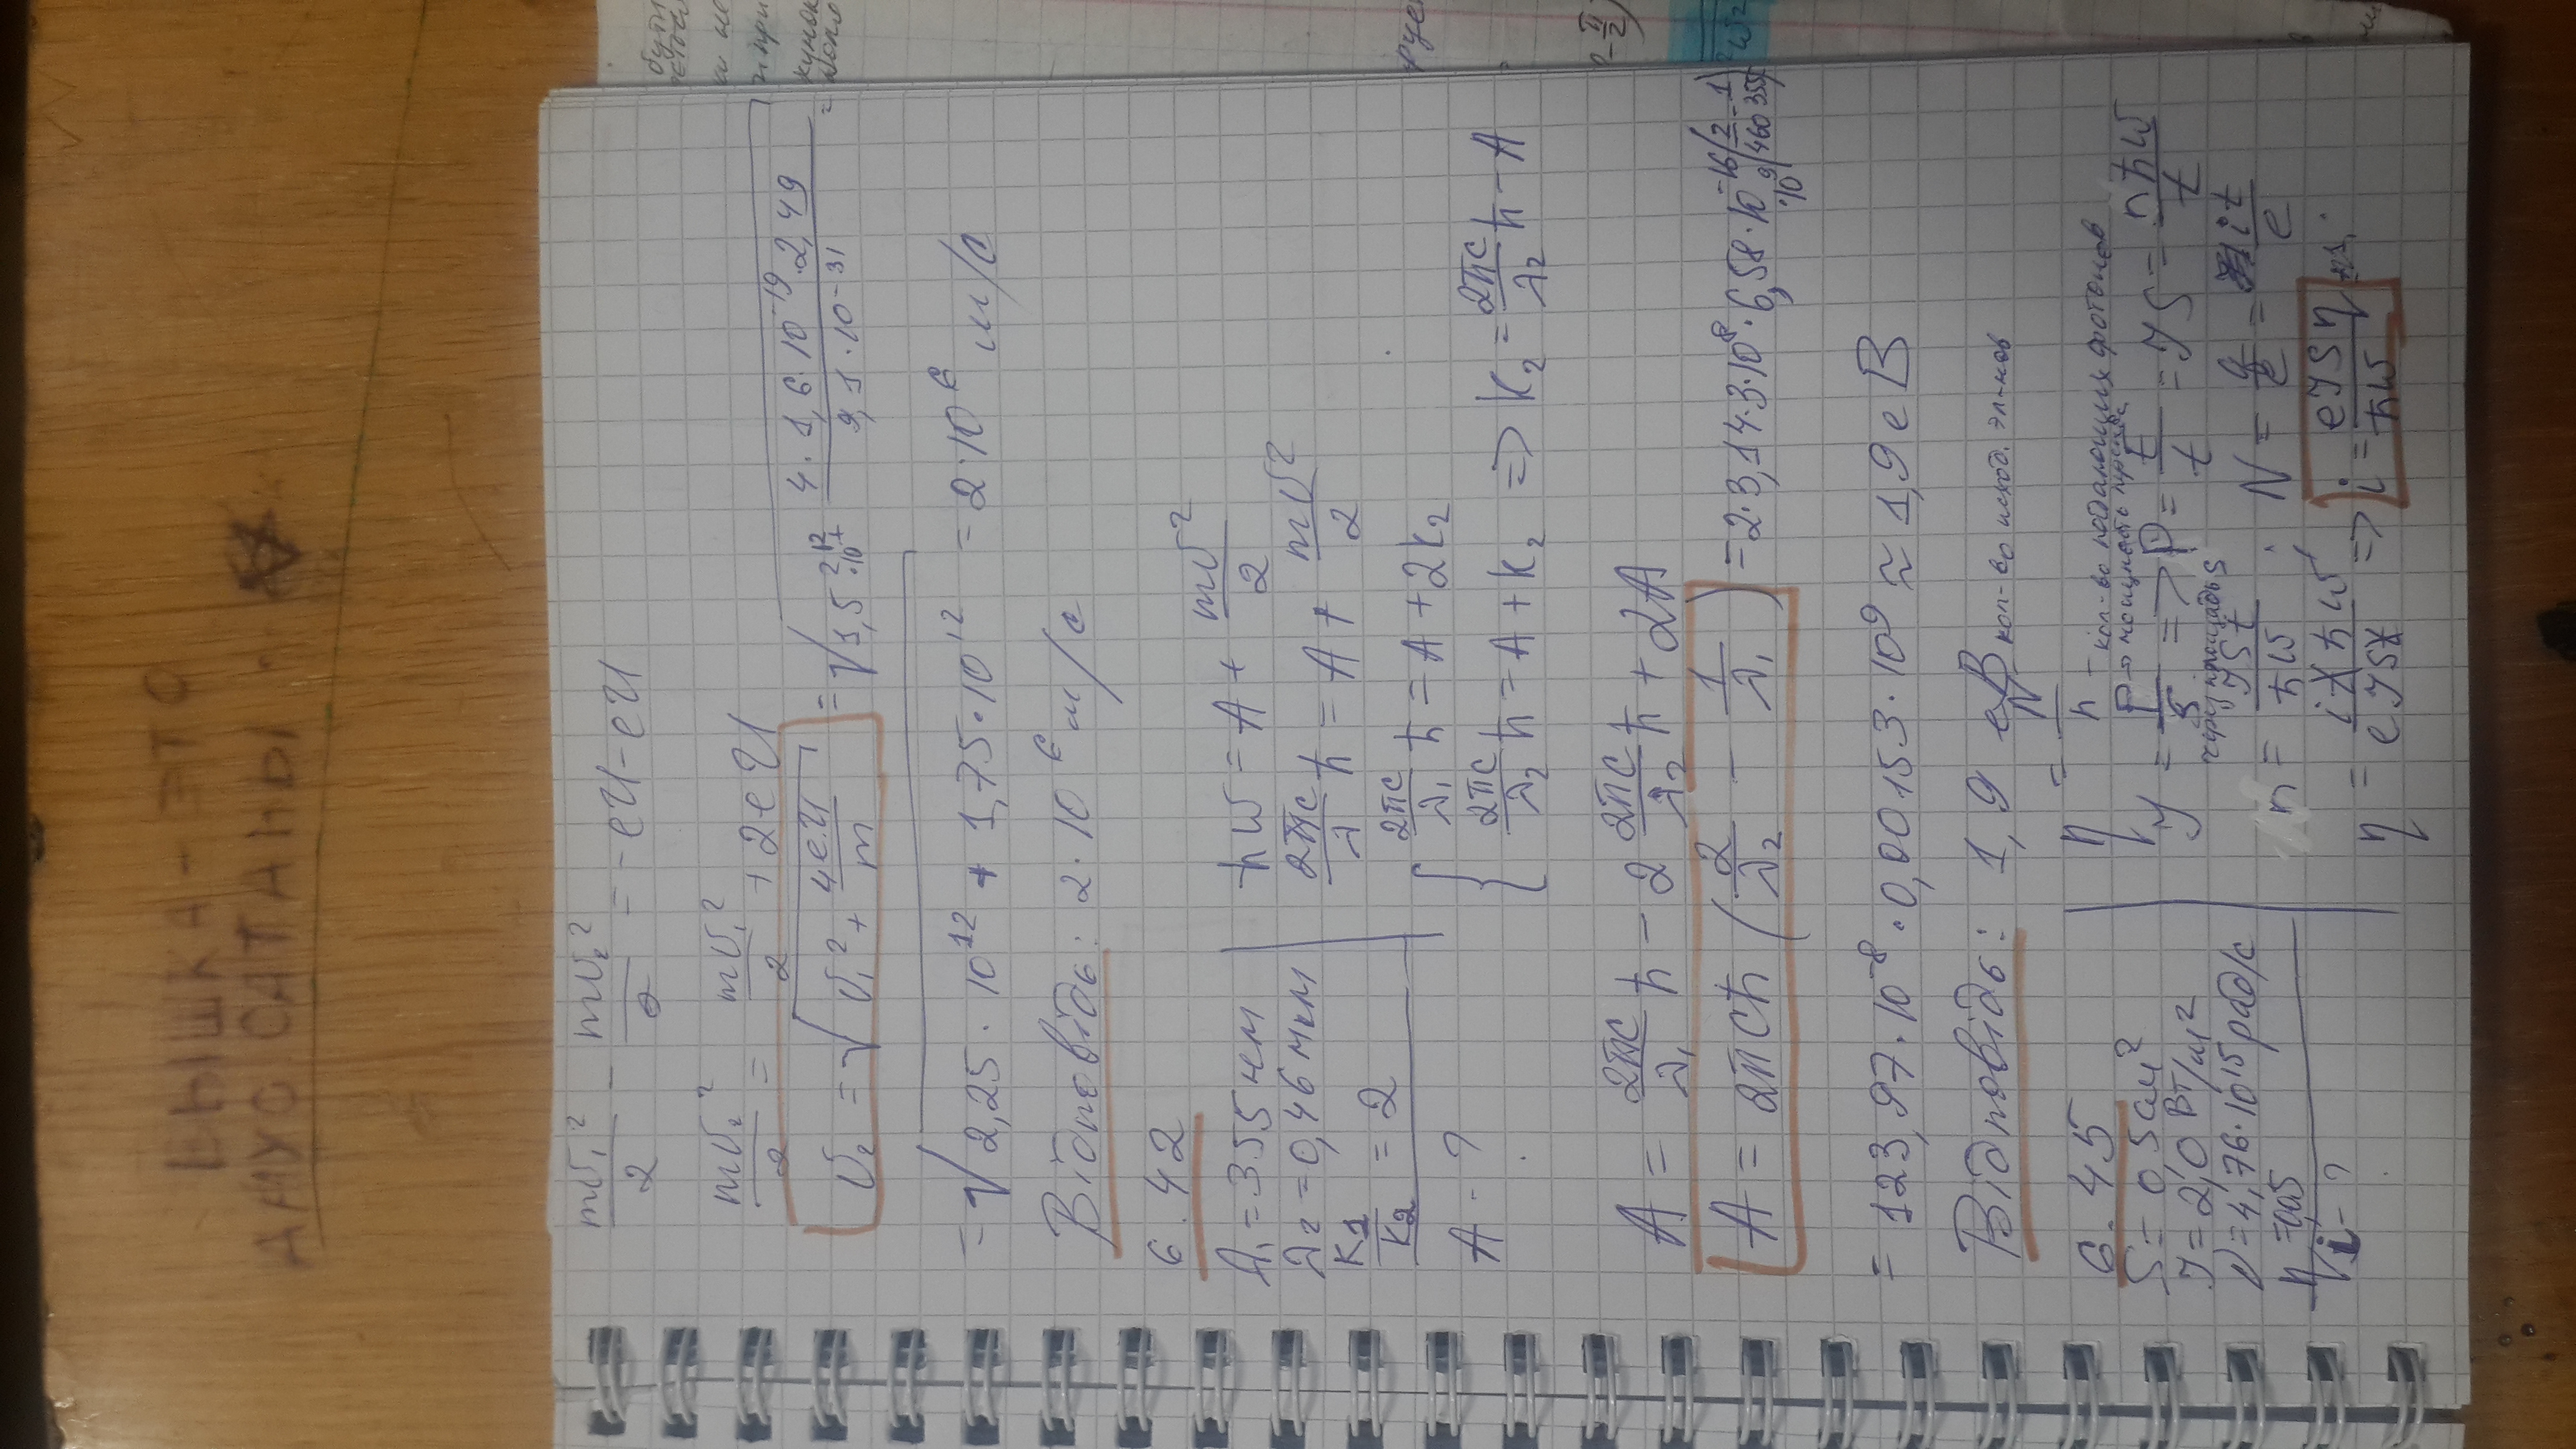 ВЫШКА - ЭТО
АНУС САТАНЫ
mv₁²/2 - mv₂²/2 = -eU-eU
mv₂²/2 = mv₁²/2 + 2eU
v₂ = √(v₁² + 4eU/m) = √(1,5²·10¹² + 4·1,6·10⁻¹⁹·2,49/9,1·10⁻³¹) =
= √(2,25·10¹² + 1,75·10¹²) = 2·10⁶ м/с
Відповідь: 2·10⁶ м/с
6.42
λ₁ = 355 нм
λ₂ = 0,46 мкм
K₁/K₂ = 2
A - ?
ħω = A + mv²/2
2πc/λ ħ = A + mv²/2
{ 2πc/λ₁ ħ = A + 2K₂
2πc/λ₂ ħ = A + K₂ => K₂ = 2πc/λ₂ ħ - A
A = 2πc/λ₁ ħ - 2 2πc/λ₂ ħ + 2A
A = 2πcħ (2/λ₂ - 1/λ₁) = 2·3,14·3·10⁸·6,58·10⁻¹⁶ (2/460 - 1/355) ·10⁹
= 123,97·10⁻⁸·0,00153·10⁹ ≈ 1,9 eB
Відповідь: 1,9 eB
6.45
S = 0,5 см²
J = 2,0 Вт/м²
ν = 4,76·10¹⁵ рад/с
η = 0,05
i - ?
кол-во исход. эл-нов
η = N/n - кол-во падающих фотонов
J = P/S => P = E/t = JS = nħω/t
мощность
через площадь S
n = JSt/ħω ; N = q/e = it/e
η = itħω/eJSt => i = eJSη/ħω
бути